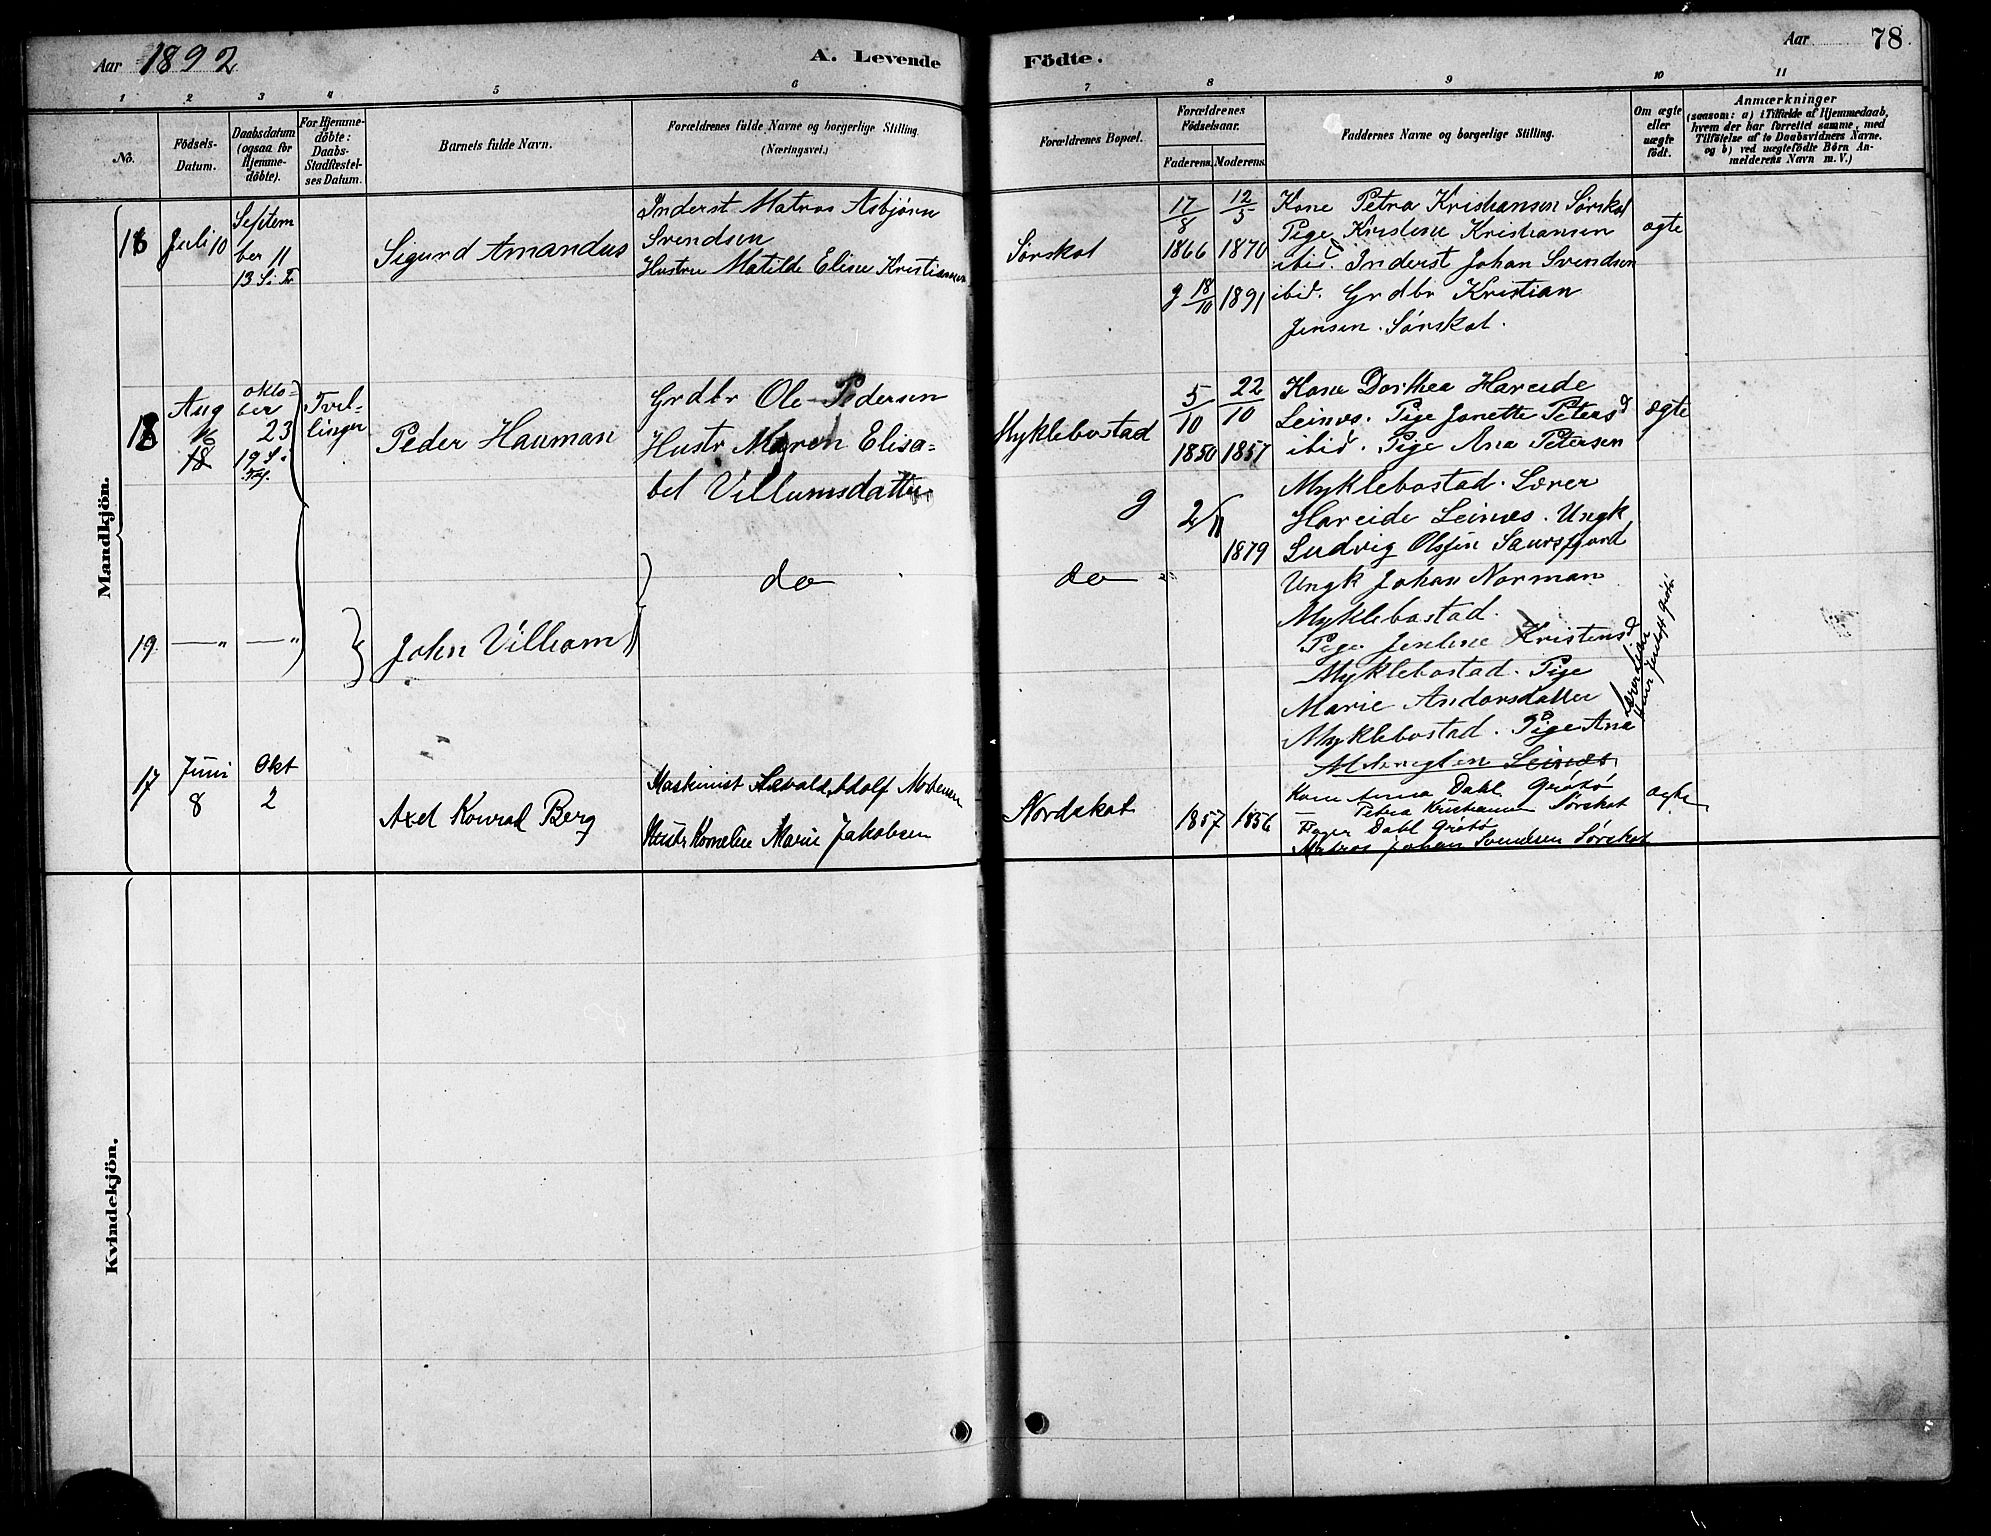 Aar 1892
A. Levende
Födte.
Aar 78
1 2 3 4 5 6 7 8 9 10 11
No.
Födsels-
Datum.
Daabsdatum
(ogsaa for
Hjemme-
döbte).
For Hjemme-
döbte:
Daabs-
Stadfæstel-
ses Datum.
Barnets fulde Navn.
Forældrenes fulde Navne og borgerlige Stilling.
(Næringsvei.)
Forældrenes Bopæl.
Forældrenes
Födselsaar.
Faderens. Moderens.
Faddernes Navne og borgerlige Stilling.
Om ægte
eller
uægte
födt.
Anmærkninger
(saasom: a) i Tilfælde af Hjemmedaab,
hvem der har forrettet samme, med
Tilföielse af to Daabsvidners Navne.
og b) ved uægtefödte Börn An-
melderens Navn m. V.)
Mandkjön.
16
Juli 10
Septem
ber 11
13 S. Tr
Sigurd Amandus
Inderst Matros Asbjørn
Svendsen
Hustru Matilde Elise Kristiansen
Sørskot
17/8 12/5
1866 1870
g 18/10 1891
Kone Petra Kristiansen Sørskot
Pige Kristine Kristiansen
ibid. Inderst Johan Svendsen
ibid. Grdbr Kristian
Jensen. Sørskot.
ægte
18
Aug
18
okto=
ber
23
19 S.
Tvil=
linger
Peder Hauman
Grdbr Ole Pedersen
Hustr Maren Elisa=
bet Villumsdatter
Myklebostad
5/10 22/10
1850 1857
g 2/11
1879
Kone Dorthea Hareide
Leines. Pige Jonette Petersd
ibid. Pige Ana Petersen
Myklebostad. Lærer
Hareide Leines. Ungk
Ludvig Olsen Saursfjord
Ungk Johan Norman
Myklebostad.
ægte
19
— " — "
John Villiam
do
do
Pige Jentine Kristensd
Myklebostad. Pige
Marie Andorsdatter
Myklebostad. Pige Ane
Leines
17
Juni
8
Okt
2
Axel Konrad Berg
Maskinist Sevald Adolf Mortensen
Hustr Kornelie Marie Jakobsen
Nordskot
1857 1856
Kone Anna Dahl Grøtø
— Petra Kristiansen Nordskot
Dahl Grøtø
Matros Johan Svendsen Sørskot
ægte
Kvindekjön.